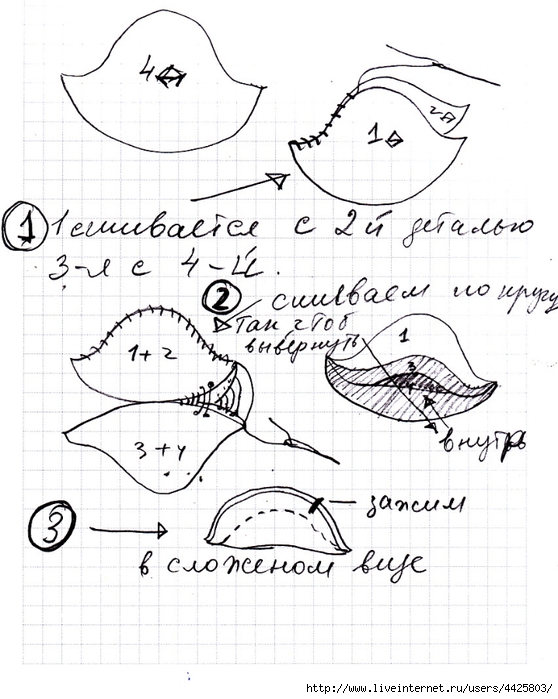 4
1
2
1 1 сшивается с 2й деталью
3-я с 4-й.
2 сшиваем по кругу
так чтоб
вывернуть
1+2
1
3
3+4
внутрь
3
зажим
в сложеном виде
http://www.liveinternet.ru/users/4425803/